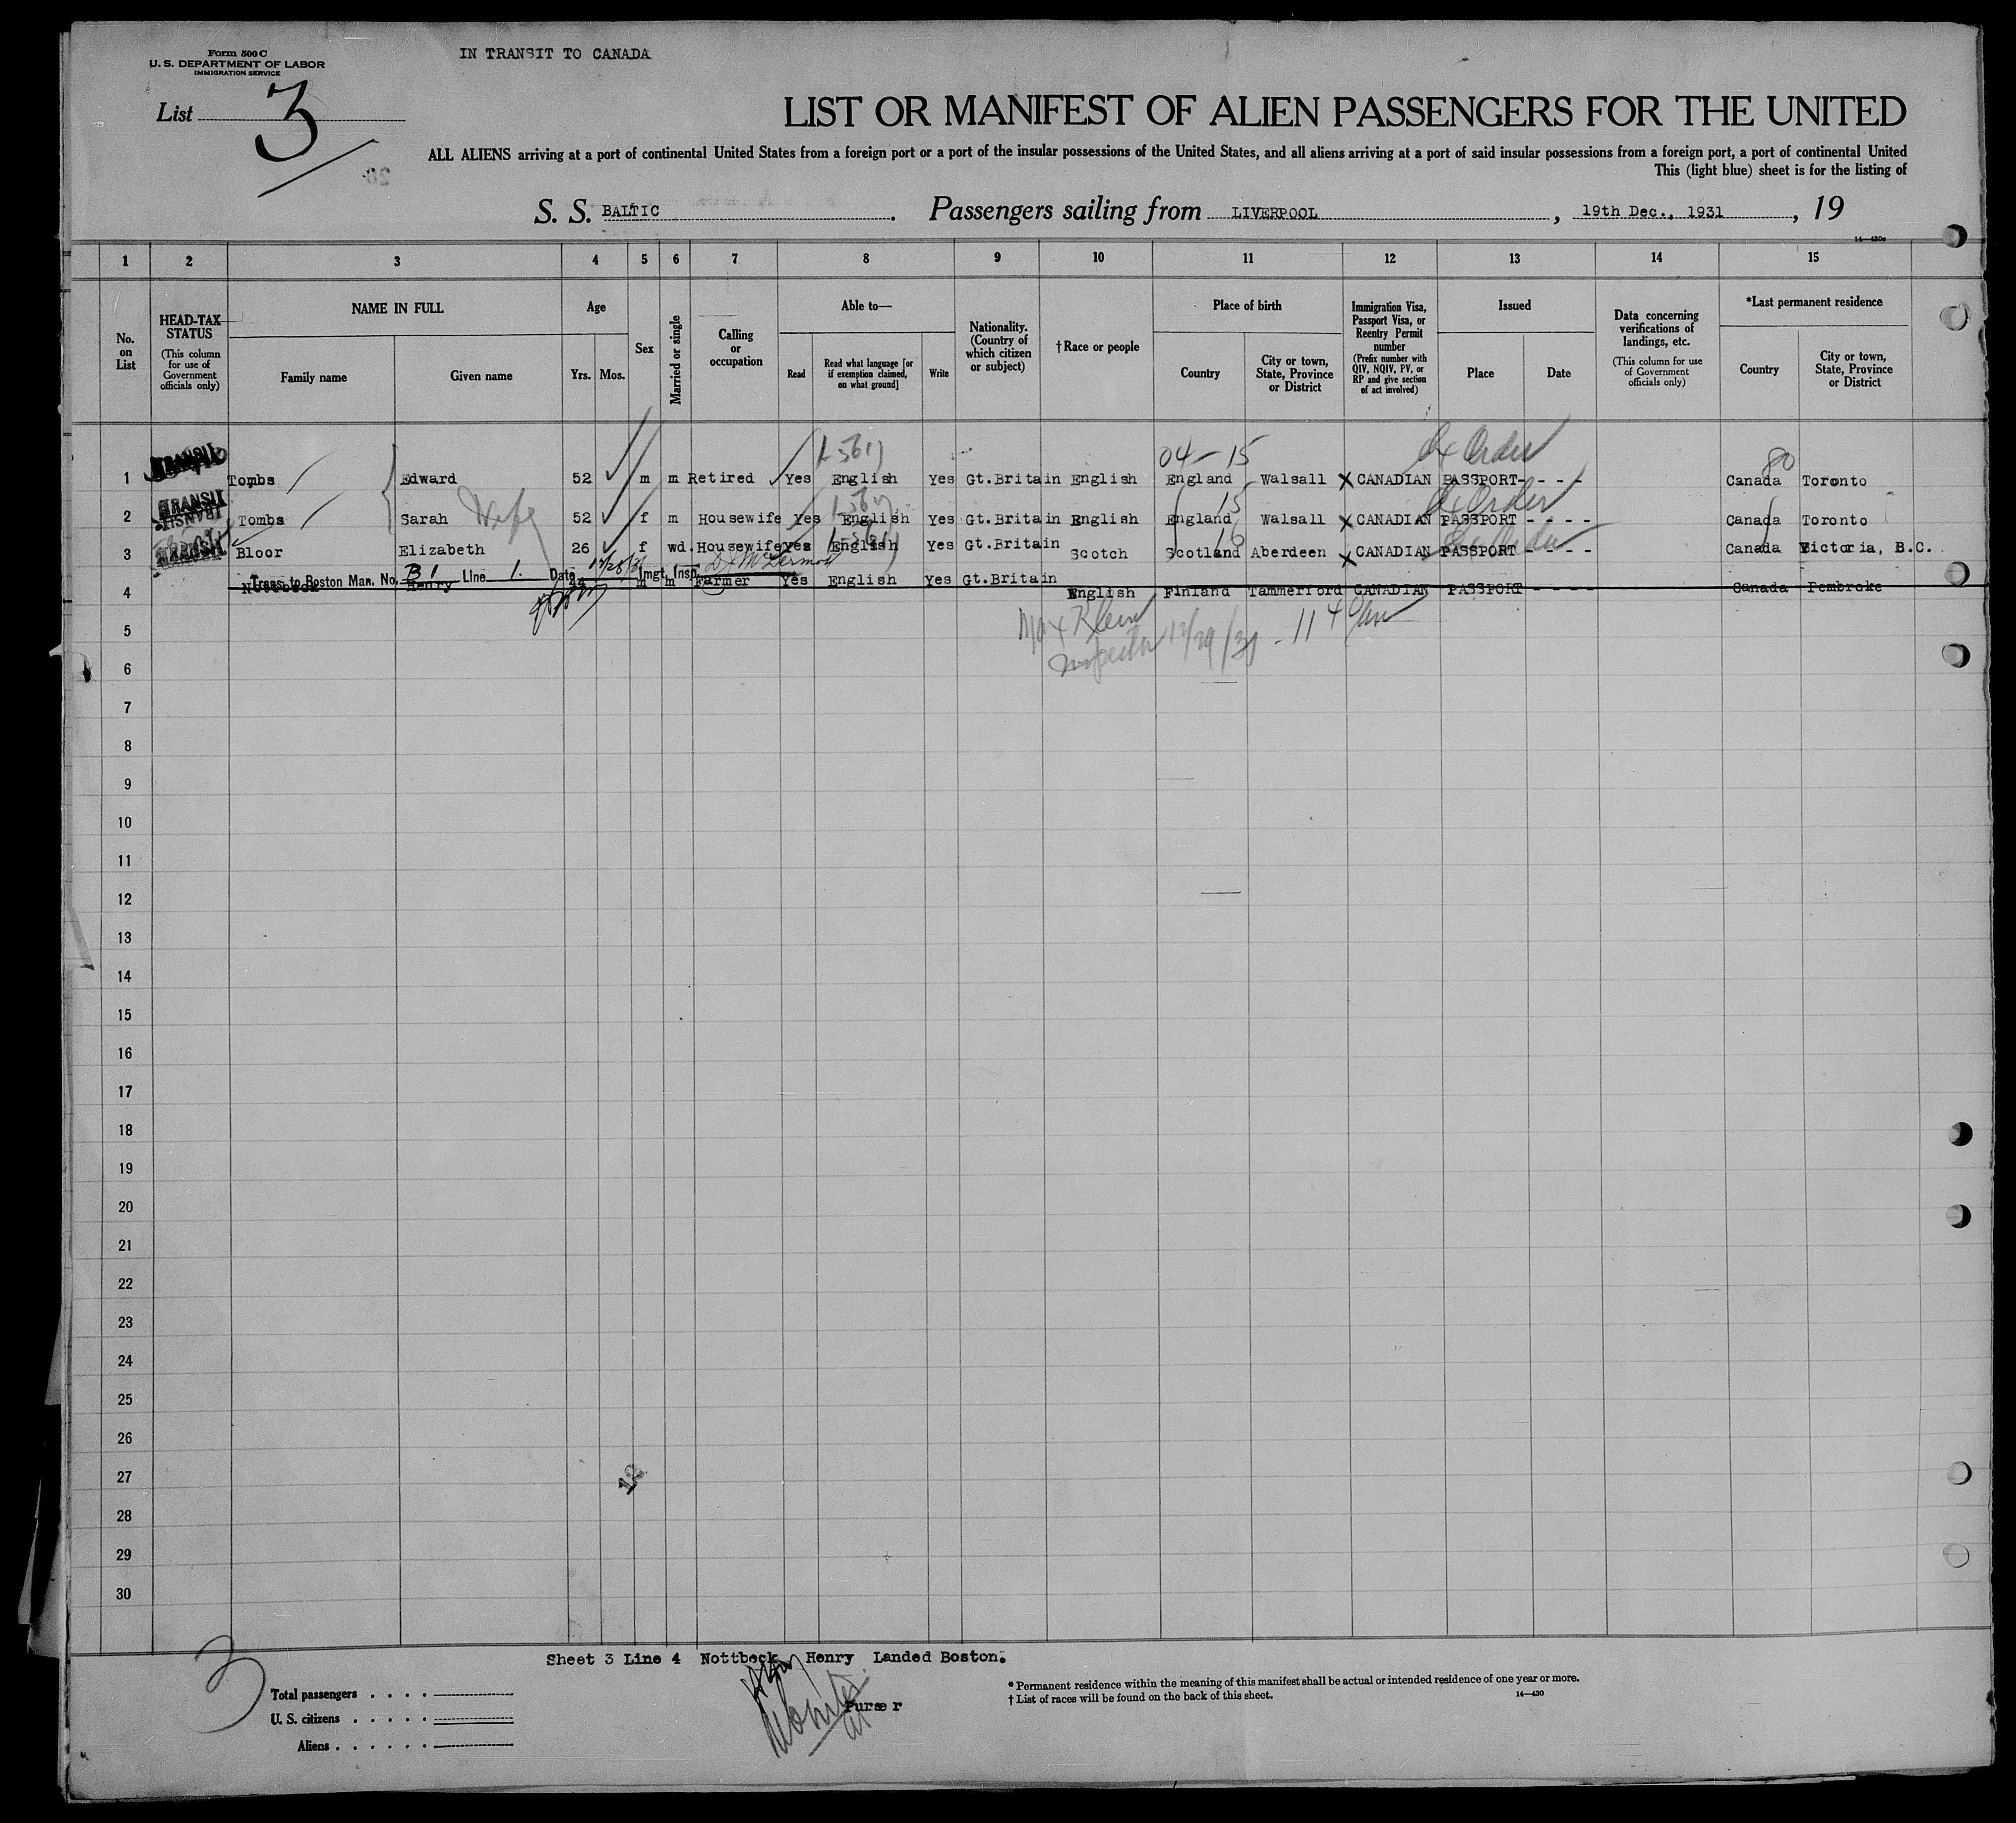 Form 500 C
U. S. DEPARTMENT OF LABOR
IMMIGRATION SERVICE
IN TRANSIT TO CANADA
List 3
LIST OR MANIFEST OF ALIEN PASSENGERS FOR THE UNITED
ALL ALIENS arriving at a port of continental United States from a foreign port or a port of the insular possessions of the United States, and all aliens arriving at a port of said insular possessions from a foreign port, a port of continental United
This (light blue) sheet is for the listing of
S. S. BALTIC. Passengers sailing from LIVERPOOL, 19th Dec., 1931, 19
14—430c
1 2 3 4 5 6 7 8 9 10 11 12 13 14 15
No. on List
HEAD-TAX STATUS
(This column for use of Government officials only)
NAME IN FULL
Family name
Given name
Age
Yrs. Mos.
Sex
Married or single
Calling or occupation
Able to—
Read
Read what language [or if exemption claimed, on what ground]
Write
Nationality. (Country of which citizen or subject)
†Race or people
Place of birth
Country
City or town, State, Province or District
Immigration Visa, Passport Visa, or Reentry Permit number
(Prefix number with QIV, NQIV, PV, or RP and give section of act involved)
Issued
Place
Date
Data concerning verifications of landings, etc.
(This column for use of Government officials only)
*Last permanent residence
Country
City or town, State, Province or District
04-15 80
1 TRANSIT Tombs Edward 52 m m Retired Yes English Yes Gt.Britain English England Walsall X CANADIAN PASSPORT- - - - Canada Toronto
15
2 TRANSIT Tombs Sarah Wife 52 f m Housewife Yes English Yes Gt.Britain English England Walsall X CANADIAN PASSPORT - - - - Canada Toronto
16
3 TRANSIT Bloor Elizabeth 26 f wd. Housewife Yes English Yes Gt.Britain Scotch Scotland Aberdeen X CANADIAN PASSPORT - - - - Canada Victoria, B.C.
Trans. to Boston Man. No. B1 Line 1. Date 12/28/31 Imgt. Insp. D J McDermott
4 Nottbeck Henry 44 m m Farmer Yes English Yes Gt.Britain English Finland Tammerford CANADIAN PASSPORT - - - - Canada Pembroke
Max Klein
Inspector 12/29/31 - 11 40
5
6
7
8
9
10
11
12
13
14
15
16
17
18
19
20
21
22
23
24
25
26
27
28
29
30
Sheet 3 Line 4 Nottbeck Henry Landed Boston.
3
Total passengers
U. S. citizens
Aliens
Purser
* Permanent residence within the meaning of this manifest shall be actual or intended residence of one year or more.
† List of races will be found on the back of this sheet.
14—430